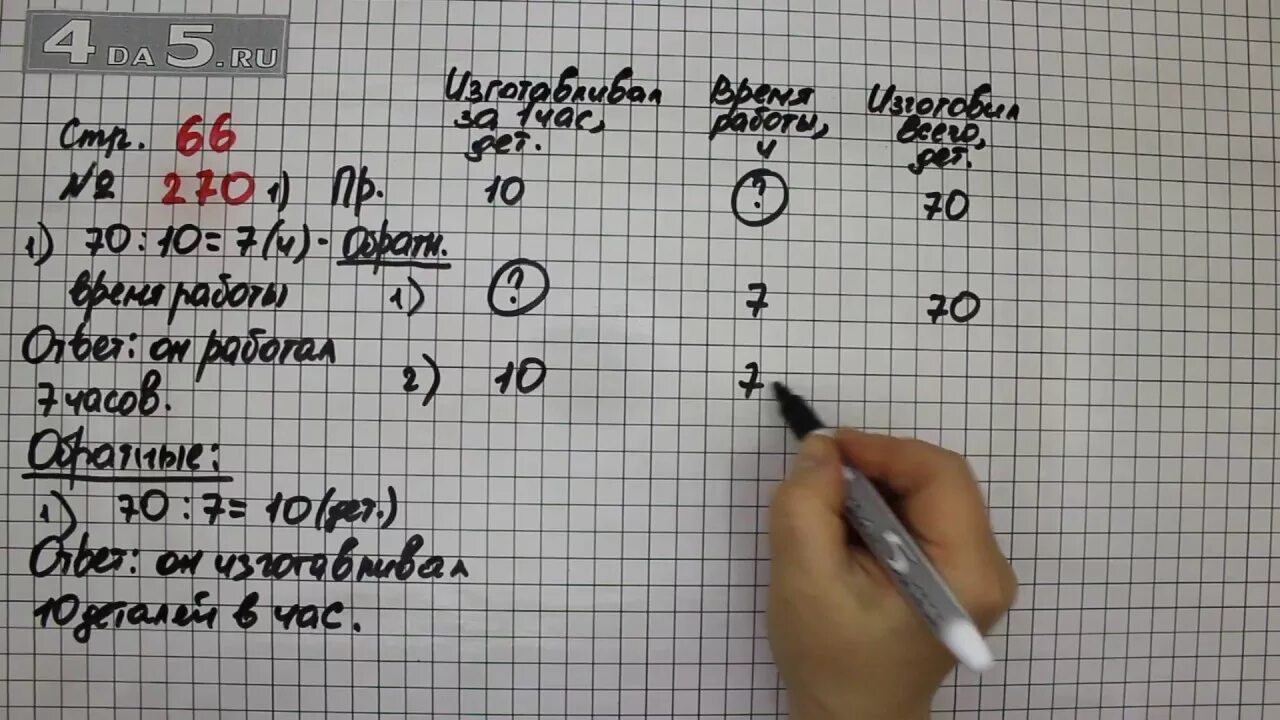 4DA5.RU
Изготавливал Время Изготовил
за 1 час, работы, всего,
дет. ч дет.
Стр. 66
№ 270 1) Пр. 10 ? 70
1) 70 : 10 = 7 (ч) - Обратн.
время работы 1) ? 7 70
Ответ: он работал
7 часов. 2) 10 7
Обратные:
1) 70 : 7 = 10 (дет.)
Ответ: он изготавливал
10 деталей в час.